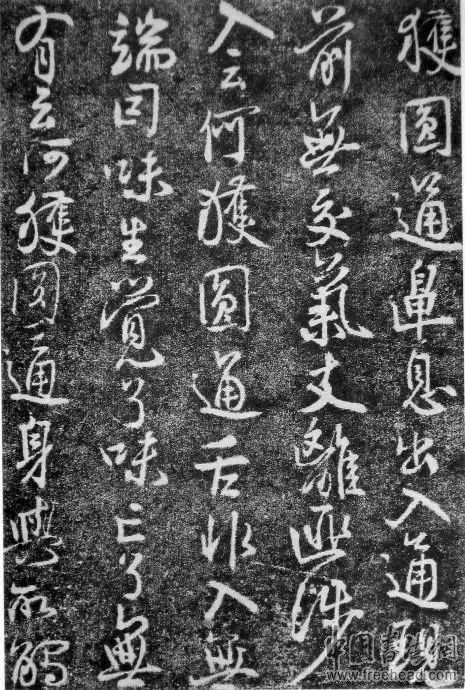 獲圓通鼻息出入通現
前無交氣支離匪涉
入云何獲圓通舌非入無
端因味生覺了味亡了無
有云何獲圓通身與所觸
中國書法網
www.freehead.com